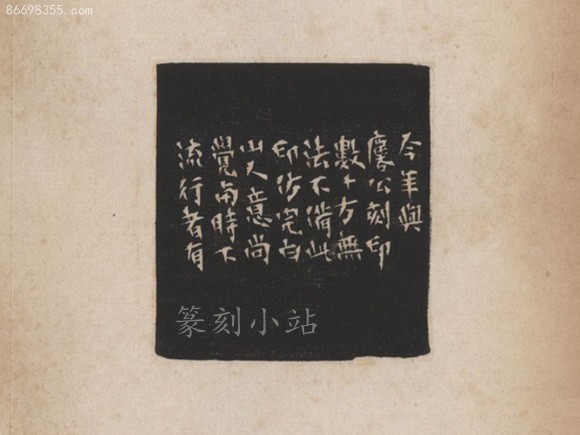 86698355.com
今年與
麐公刻印
數十方無
法不備此
印仿完白
山人意尚
覺時下
流行者有
篆刻小站